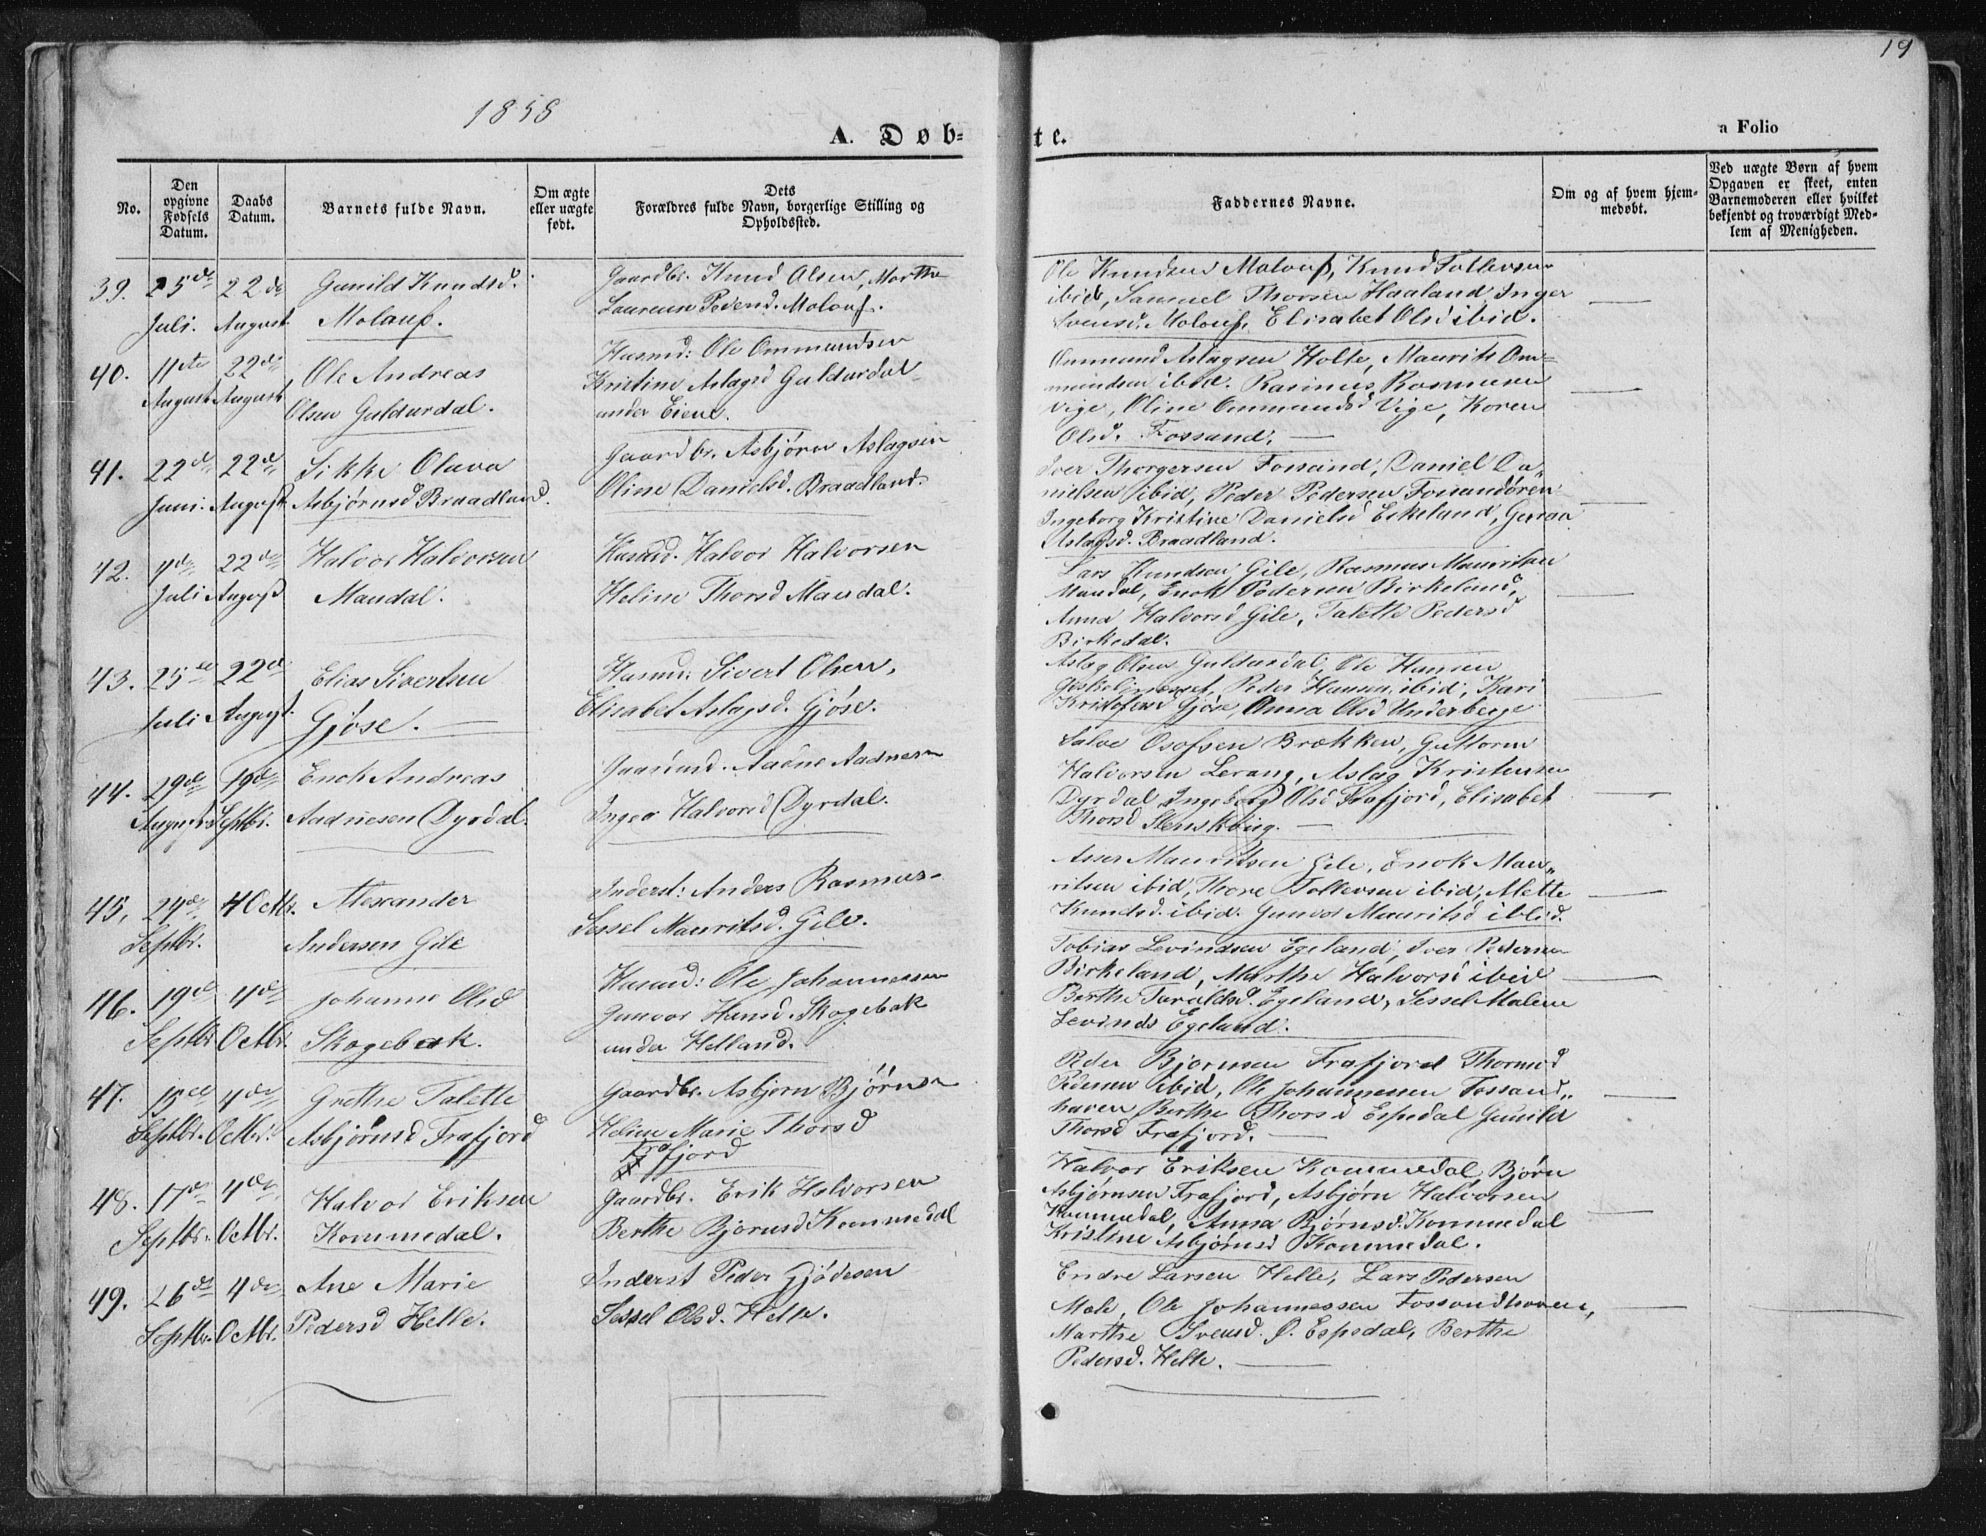 19
1858
A. Døb-
te.
a Folio
No.
Den
opgivne
Fødsels
Datum.
Daabs
Datum.
Barnets fulde Navn.
Om ægte
eller uægte
født.
Dets
Forældres fulde Navn, borgerlige Stilling og
Opholdssted.
Faddernes Navne.
Om og af hvem hjem-
medøbt.
Ved uægte Børn af hvem
Opgaven er skeet, enten
Barnemoderen eller hvilket
bekjendt og troværdigt Med-
lem af Menigheden.
39. 25de 22de Gunild Knudsd.
Juli. August Molauf.
Gaardbr. Knud Olsen, Marthe
Laurense Pedersd. Molauf.
Ole Knudsen Molauf, Knud Tollevsen
ibid, Samuel Thorsen Haaland, Inger
Svensd. Molauf, Elisabet Olsd ibid.
40. 11te 22de Ole Andreas
August August Olsen Guldurdal.
Husmd: Ole Ommundsen
Kristine Aslagsd Guldurdal
under Eiene.
Ommund Aslagsen Holte, Maurits Om-
mundsen ibid. Rasmus Rasmusen
Vige, Oline Ommundsd Vige, Koren
Olsd. Fossand.
41. 22de 22de Sikke Olava
Juni. August Asbjørnsd Braadland.
Gaardbr. Asbjørn Aslagsen
Oline Danielsd. Braadland.
Iver Thorgersen Fossand, Daniel Da-
nielsen ibid, Peder Pedersen Fossandøren
Ingeborg Kristine Danielsd Eikeland,
Aslagsd. Braadland.
42. 4de 22de Halvor Halvorsen
Juli August Mandal.
Husmd. Halvor Halvorsen
Heline Thorsd Mandal.
Lars Knudsen Gile, Rasmus Mauritsen
Mandal, Enok Pedersen Birkeland,
Anna Halvorsd Gile, Talette Pedersd
Birkedal.
43. 25de 22de Elias Sivertsen
Juli August. Gjøse.
Husmd: Sivert Olsen,
Elisabet Aslagsd. Gjøse.
Aslag Olsen Guldurdal, Ole Hansen
Peder Hansen ibid, Kari
Kristofersd Gjøse, Anna Olsd Underberge
44. 29de 19de Enok Andreas
August Septbr. Aadnesen Dyrdal.
Gaarmd. Aadne Aadnesen
Inger Halvorsd Dyrdal.
Salve Osofsen Brækken, Guttorm
Halvorsen Lerang, Aslag Kristensen
Dyrdal Ingeborg Olsd Frafjord, Elisabet
Thorsd
45, 24de 4 Octbr. Alexander
Septbr. Andersen Gile
Inderst: Anders Rasmus-
Sessel Mauritsd. Gile.
Asser Mauritsen Gile, Enok Mau-
ritsen ibid, Thore Tollevsen ibid, Mette
Knudsd. ibid. Gunvor Mauritsd ibid.
46. 19de 4de Johanne Olsd
Septbr. Octbr. Skogebak.
Husmd: Ole Johannessen
Gunvor Hansd. Skogebak
under Helland.
Tobias Levindsen Egeland, Iver Pedersen
Birkeland, Marthe Halvorsd ibid
Berthe Taraldsd. Egeland, Sessel Malene
Levinds Egeland.
47. 15de 4de Grethe Talette
Septbr. Octbr. Asbjørnsd Frafjord
Gaardbr. Asbjørn Bjørnsen
Heline Marie Thorsd
Frafjord
Peder Bjørnsen Frafjord Thormod
Pedersen ibid, Ole Johannessen Fossand-
haven Berthe Thorsd Espedal Gunild
Thorsd Frafjord.
48. 17de 4de Halvor Eriksen
Septbr. Octbr. Kommedal.
Gaardbr. Erik Halvorsen
Berthe Bjørnsd Kommedal
Halvor Eriksen Kommedal Bjørn
Asbjørnsen Frafjord, Asbjørn Halvorsen
Kommedal, Anna Bjørnsd. Kommedal
Kristine Asbjørnsd Kommedal.
49. 26de 4de Ane Marie
Septbr. Octbr. Pedersd Helle.
Inderst Peder Gjødesen
Sessel Olsd. Helle.
Endre Larsen Helle, Lars Pedersen
Mæle, Ole Johannessen Fossandhaven,
Marthe Svensd. Ø. Espedal, Berthe
Pedersd. Helle.